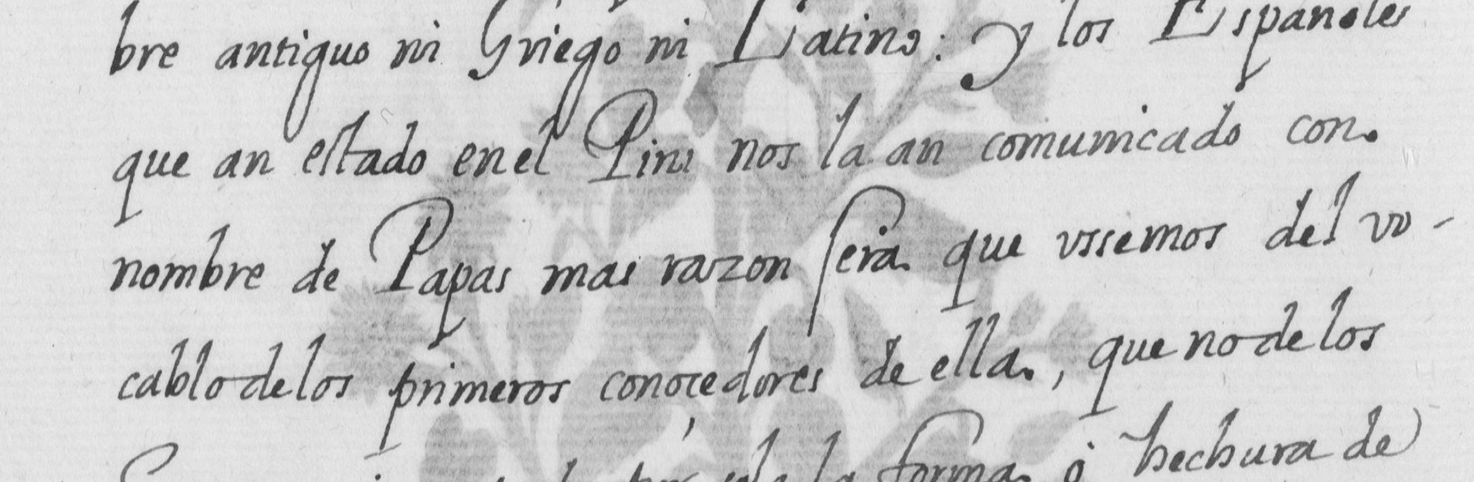 bre antiguo ni Griego ni Latino: y los Españoles
que an estado en el Piru nos la an comunicado con.
nombre de Papas mas razon sera que vssemos del vo-
cablo de los primeros conocedores de ella, que no de los
la forma ó hechura de